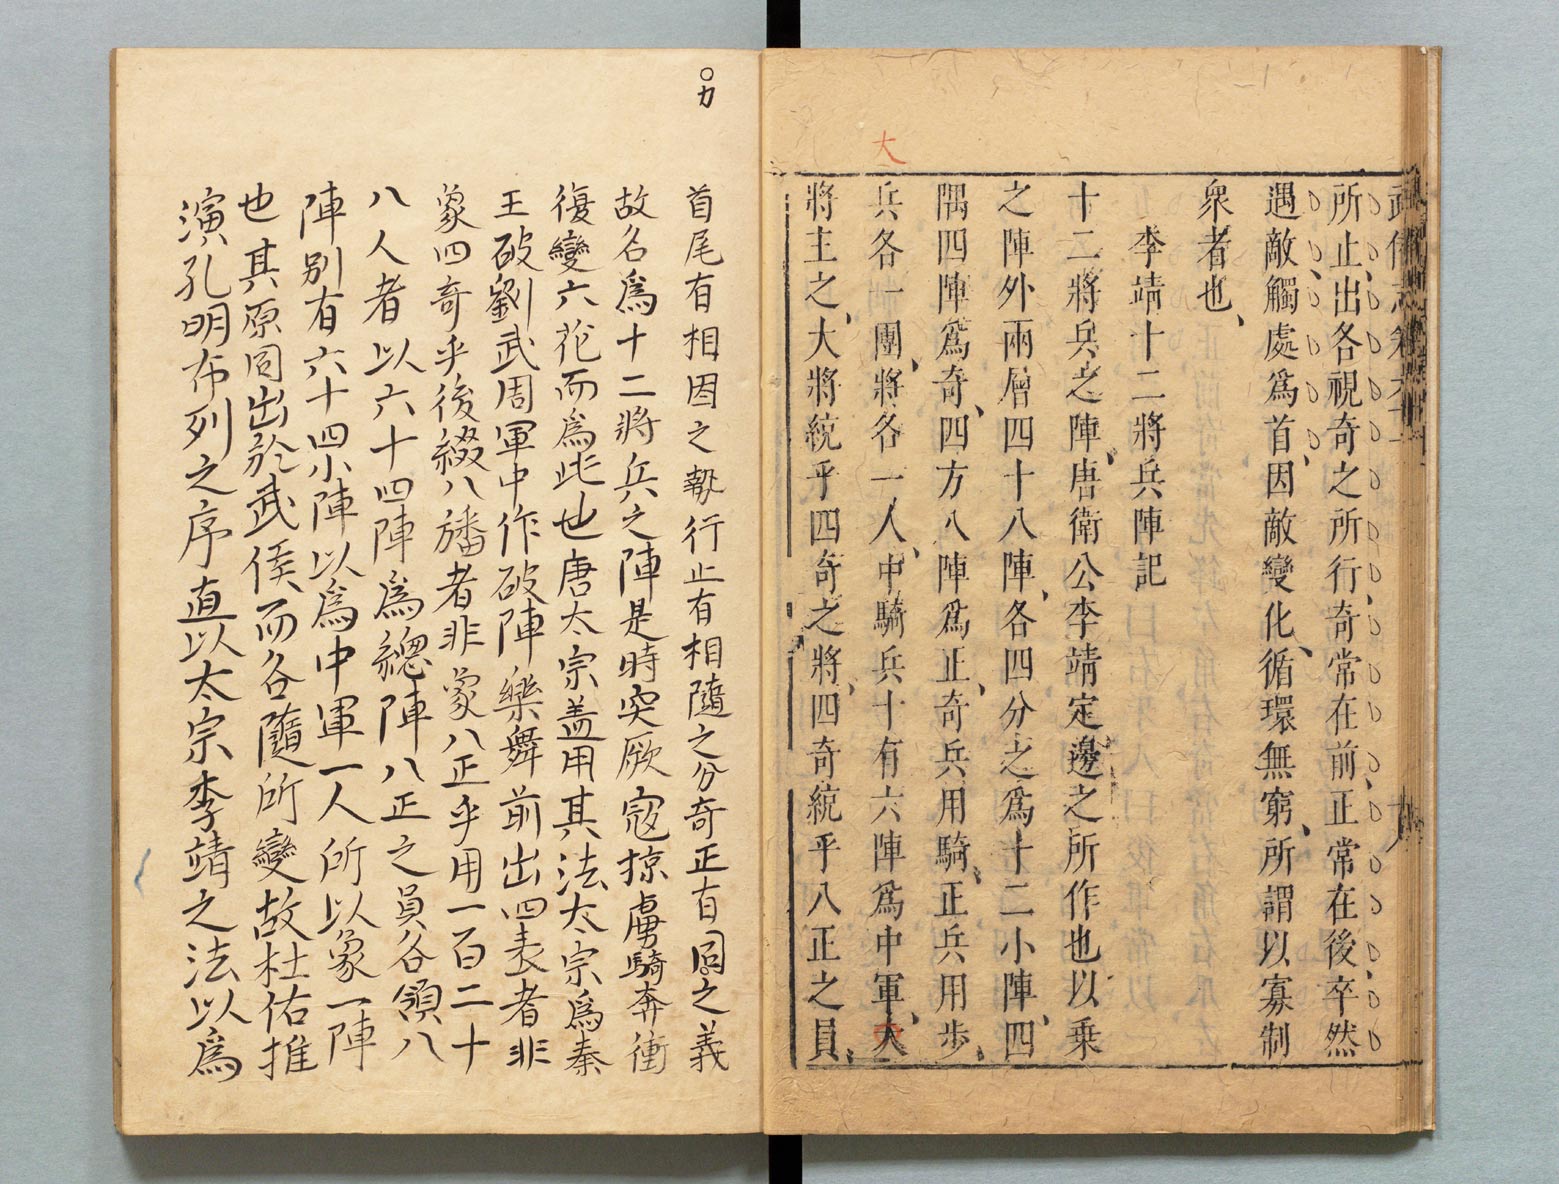 武備志卷六十
所止出各視奇之所行奇常在前正常在後卒然
遇敵觸處為首因敵變化循環無窮所謂以寡制
衆者也
李靖十二將兵陣記
十二將兵之陣唐衛公李靖定邊之所作也以乗
之陣外兩層四十八陣各四分之爲十二小陣四
隅四陣爲奇四方八陣爲正奇兵用騎正兵用步
兵各一團將各一人中騎兵十有六陣爲中軍大
將主之大將統乎四奇之將四奇統乎八正之員
大
首尾有相因之執行止有相隨之分奇正有同之義
故名爲十二將兵之陣是時突厥寇掠虜騎奔衝
復變六花而爲此也唐太宗盖用其法太宗爲秦
王破劉武周軍中作破陣樂舞前出四表者非
象四奇乎後綴八旛者非象八正乎用一百二十
八人者以六十四陣爲總陣八正之員各領八
陣别有六十四小陣以爲中軍一人所以象一陣
也其原同出於武侯而各隨所變故杜佑推
演孔明布列之序直以太宗李靖之法以爲